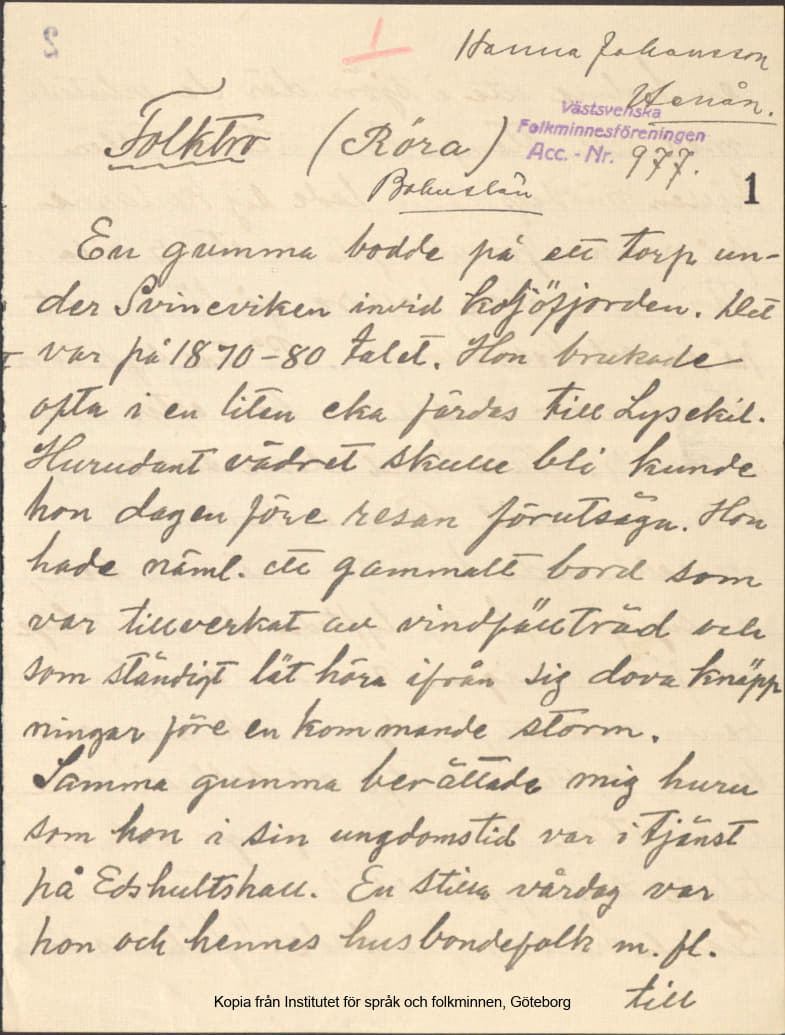 1
Hanna Johansson
Henån.
Västsvenska
Folkminnesföreningen
Acc. - Nr. 977.
Folktro (Röra)
Bohuslän
1
En gumma bodde på ett torp un-
der Svineviken invid Koljöfjorden. Det
var på 1870-80 talet. Hon brukade
ofta i en liten eka färdas till Lysekil.
Hurudant vädret skulle bli kunde
hon dagen före resan förutsäga. Hon
hade näml. ett gammalt bord som
var tillverkat av vindfällträd och
som ständigt lät höra ifrån sig dova knäpp
ningar före en kommande storm.
Samma gumma berättade mig huru
som hon i sin ungdomstid var i tjänst
på Edshultshall. En stilla vårdag var
hon och hennes husbondefolk m. fl.
till
Kopia från Institutet för språk och folkminnen, Göteborg